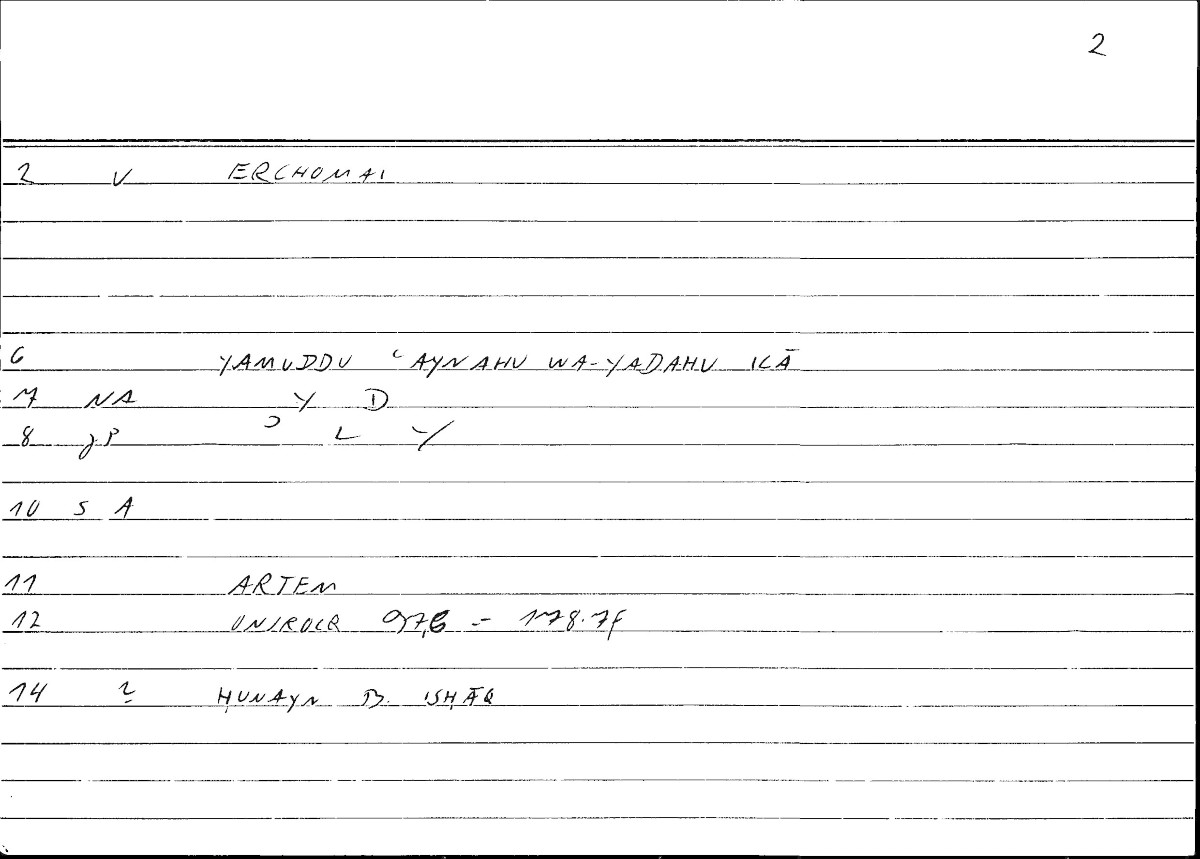 2
2 V ERCHOMAI
6 YAMUDDU ʿAYNAHU WA-YADAHU ILĀ
7 NA Y D
8 JP ʾ L Y
10 S A
11 ARTEM
12 ONIROCR 97,6 - 178.7f
14 2 ḤUNAYN B. ISḤĀQ